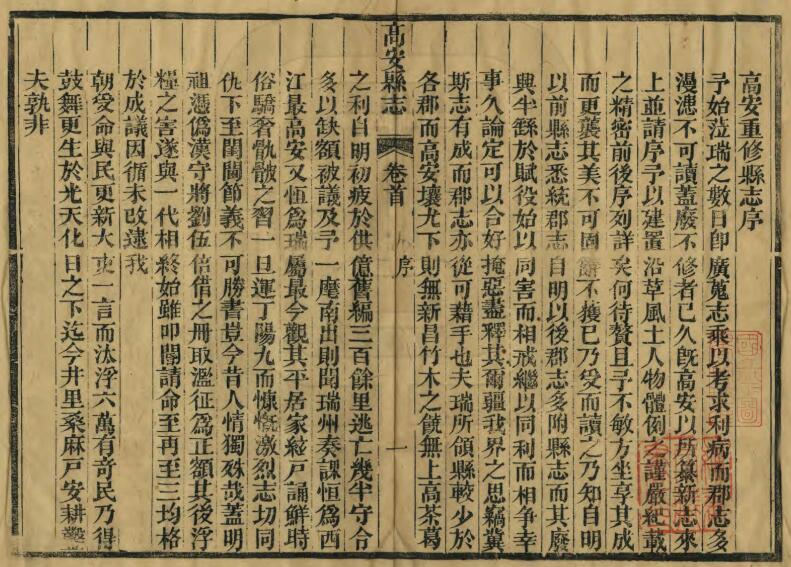 高安重修縣志序
予始涖瑞之數日卽廣蒐志乘以考求利病而郡志多
漫漶不可讀蓋廢不修者已久旣高安以所纂新志來
上並請序予以建置沿革風土人物體例之謹嚴紀載
之精密前後序列詳矣何待贅且予不敏方坐享其成
而更襲其美不可固辭不獲已乃受而讀之乃知自明
以前縣志悉統郡志自明以後郡志多附縣志而其廢
興半繇於賦役始以同害而相戒繼以同利而相爭幸
事久論定可以合好掩惡盡釋其爾疆我界之思竊冀
斯志有成而郡志亦從可藉手也夫瑞所領縣較少於
各郡而高安壤尤下則無新昌竹木之饒無上高茶葛
高安縣志
卷首
序
一
之利自明初疲於供億舊編三百餘里逃亡幾半守令
多以缺額被議及予一麾南出則聞瑞州奏課恒爲西
江最高安又恒爲瑞屬最今觀其平居家絃戸誦鮮時
俗驕奢骩骳之習一旦運丁陽九而慷慨激烈志切同
仇下至閨閫節義不可勝書豈今昔人情獨殊哉蓋明
祖憑僞漢守將劉伍倍借之冊取濫征爲正額其後浮
糧之害遂與一代相終始雖叩閽請命至再至三均格
於成議因循未改逮我
朝受命與民更新大吏一言而汰浮六萬有奇民乃得
鼓舞更生於光天化日之下迄今井里桑麻戸安耕鑿
夫孰非